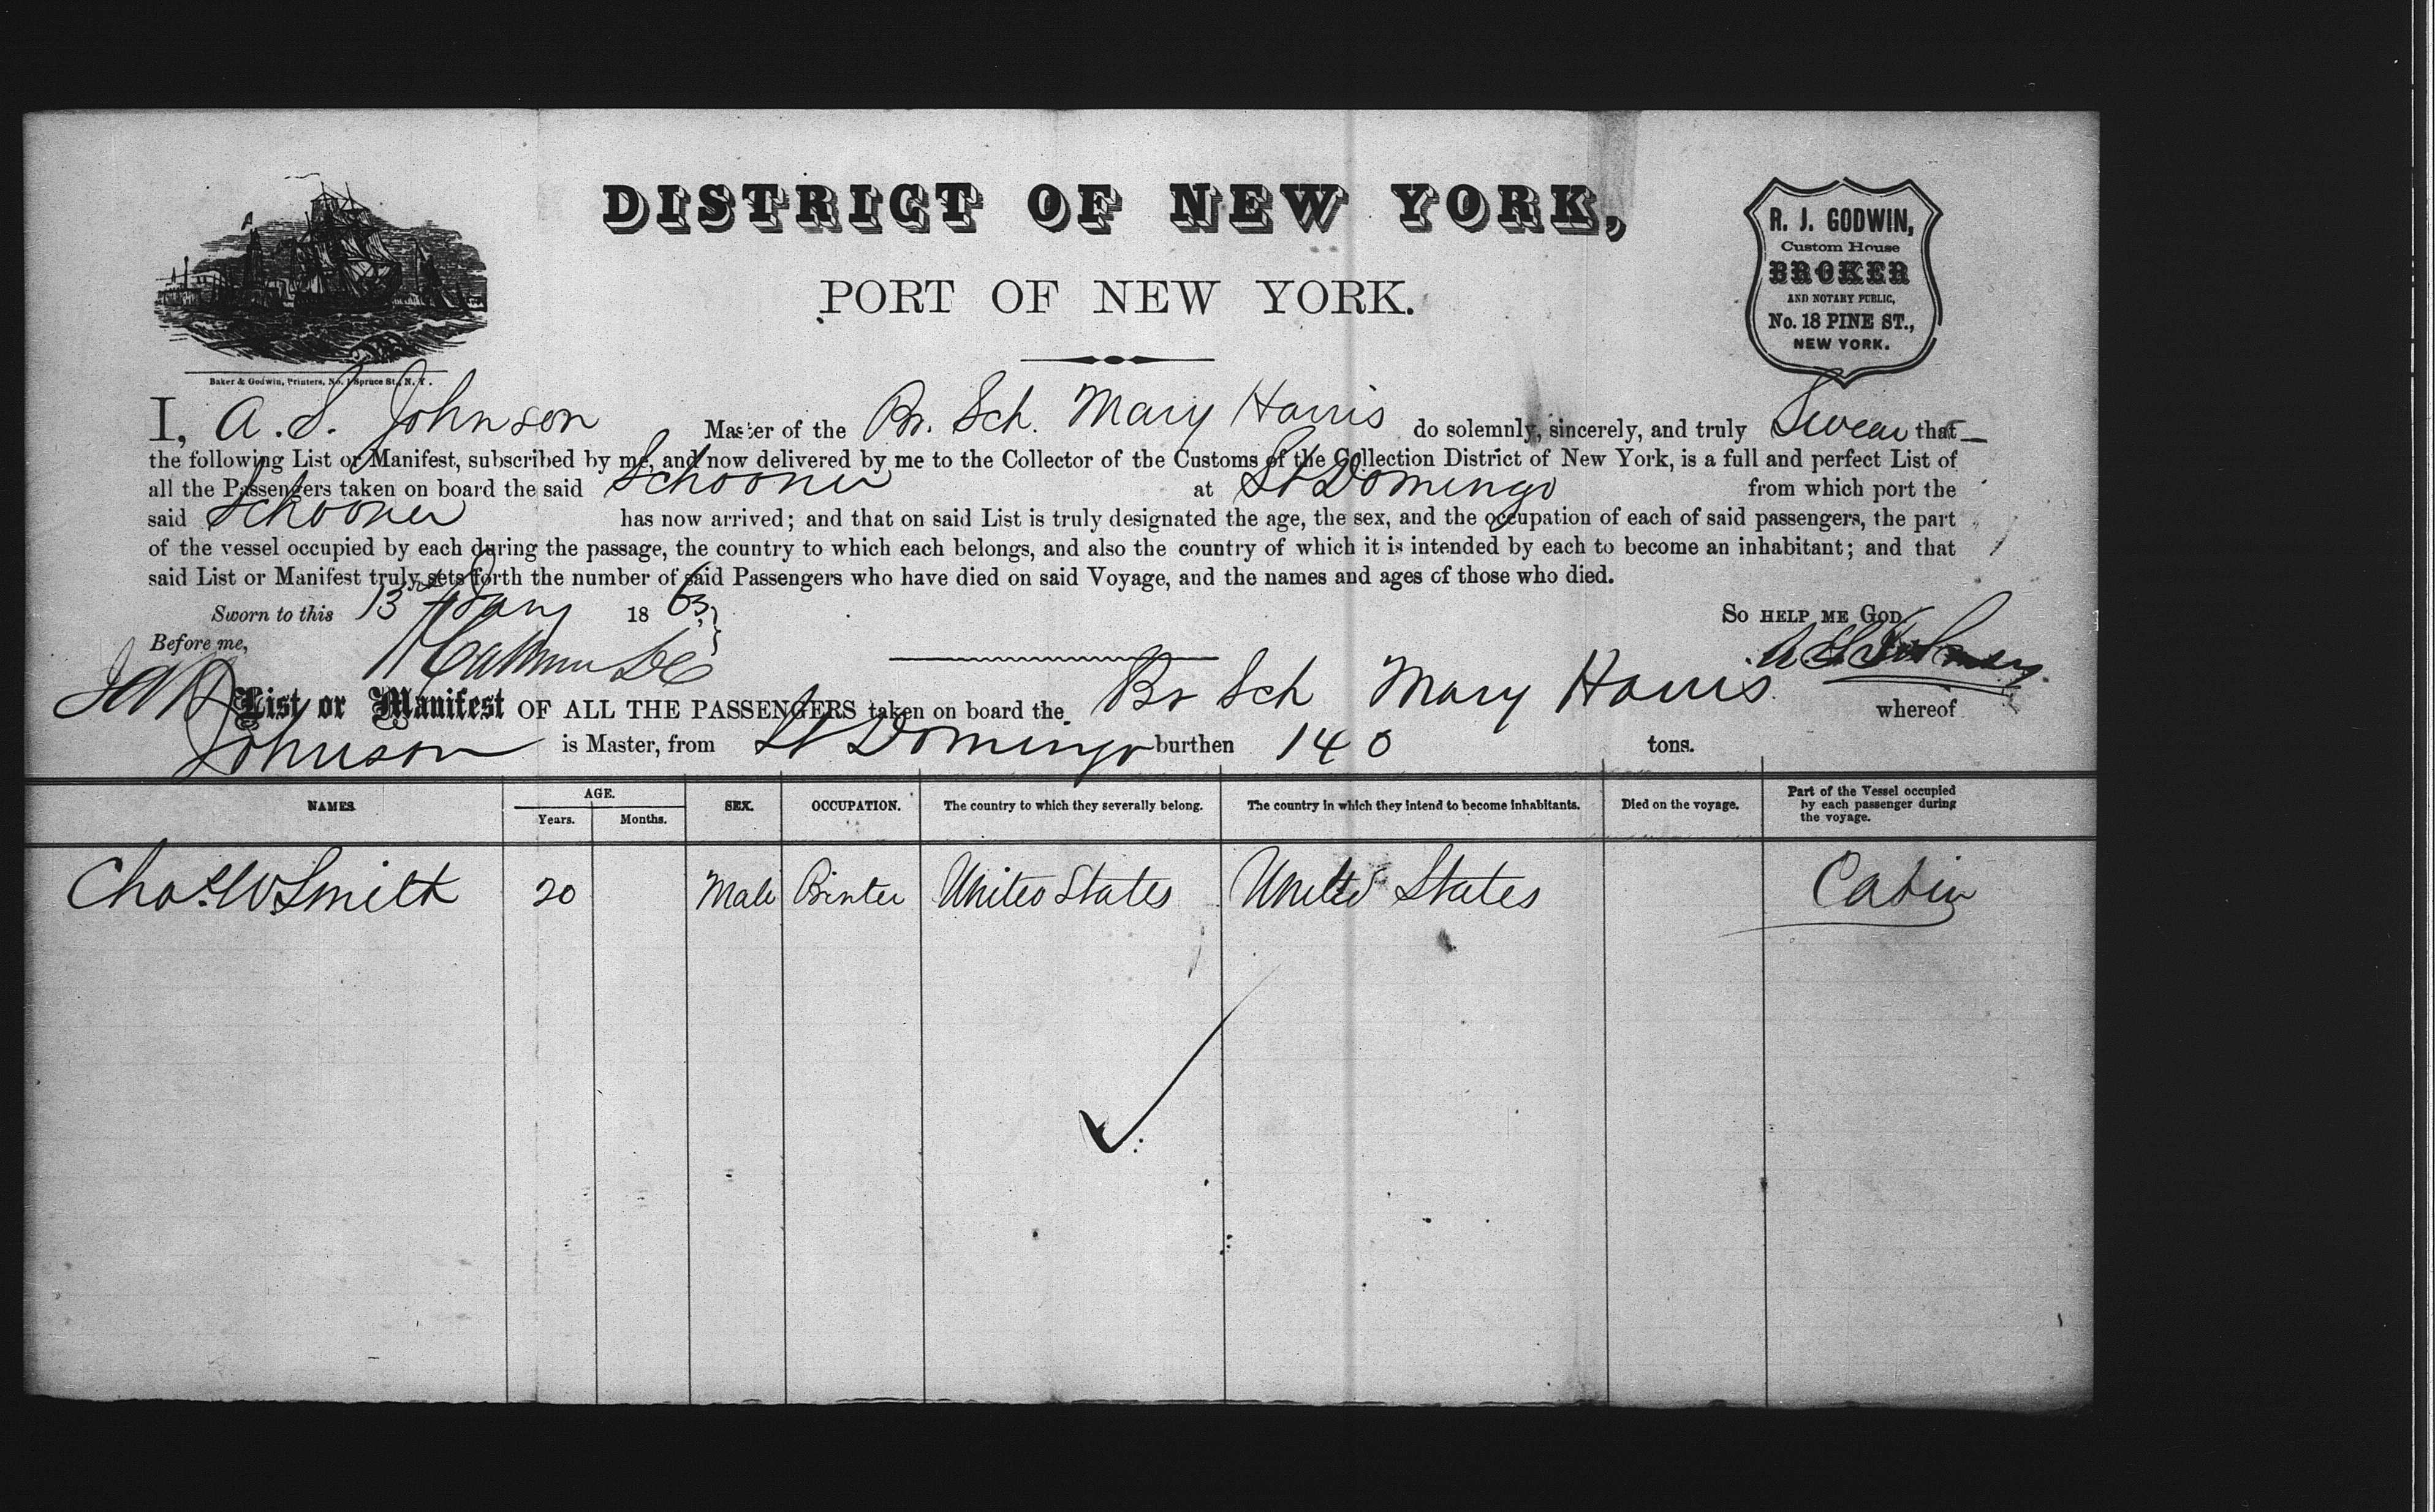 DISTRICT OF NEW YORK,
PORT OF NEW YORK.
R. J. GODWIN,
Custom House
BROKER
AND NOTARY PUBLIC,
No. 18 PINE ST.,
NEW YORK.
Baker & Godwin, Printers, No. 1 Spruce St., N. Y.
I, A. S. Johnson Master of the Br. Sch. Mary Harris do solemnly, sincerely, and truly Swear that
the following List or Manifest, subscribed by me, and now delivered by me to the Collector of the Customs of the Collection District of New York, is a full and perfect List of
all the Passengers taken on board the said Schooner at St Domingo from which port the
said Schooner has now arrived; and that on said List is truly designated the age, the sex, and the occupation of each of said passengers, the part
of the vessel occupied by each during the passage, the country to which each belongs, and also the country of which it is intended by each to become an inhabitant; and that
said List or Manifest truly sets forth the number of said Passengers who have died on said Voyage, and the names and ages of those who died.
Sworn to this 13 Jany 1863 SO HELP ME GOD.
Before me, A S Johnson
List or Manifest OF ALL THE PASSENGERS taken on board the Br Sch Mary Harris whereof
Johnson is Master, from St Domingo burthen 140 tons.
NAMES AGE. Years. Months. SEX. OCCUPATION. The country to which they severally belong. The country in which they intend to become inhabitants. Died on the voyage. Part of the Vessel occupied by each passenger during the voyage.
Chas. W Smith 20 Male Printer United States United States Cabin